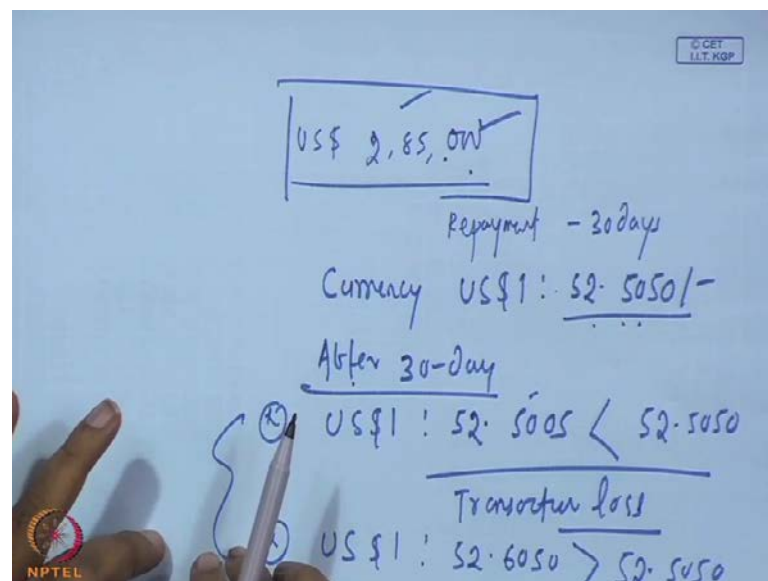 © CET
I.I.T. KGP
US$ 2,85,000
Repayment - 30 days
Currency US$1: 52.5050/-
After 30-day
US$1: 52.5005 < 52.5050
Transaction loss
US$1: 52.6050 > 52.5050
NPTEL